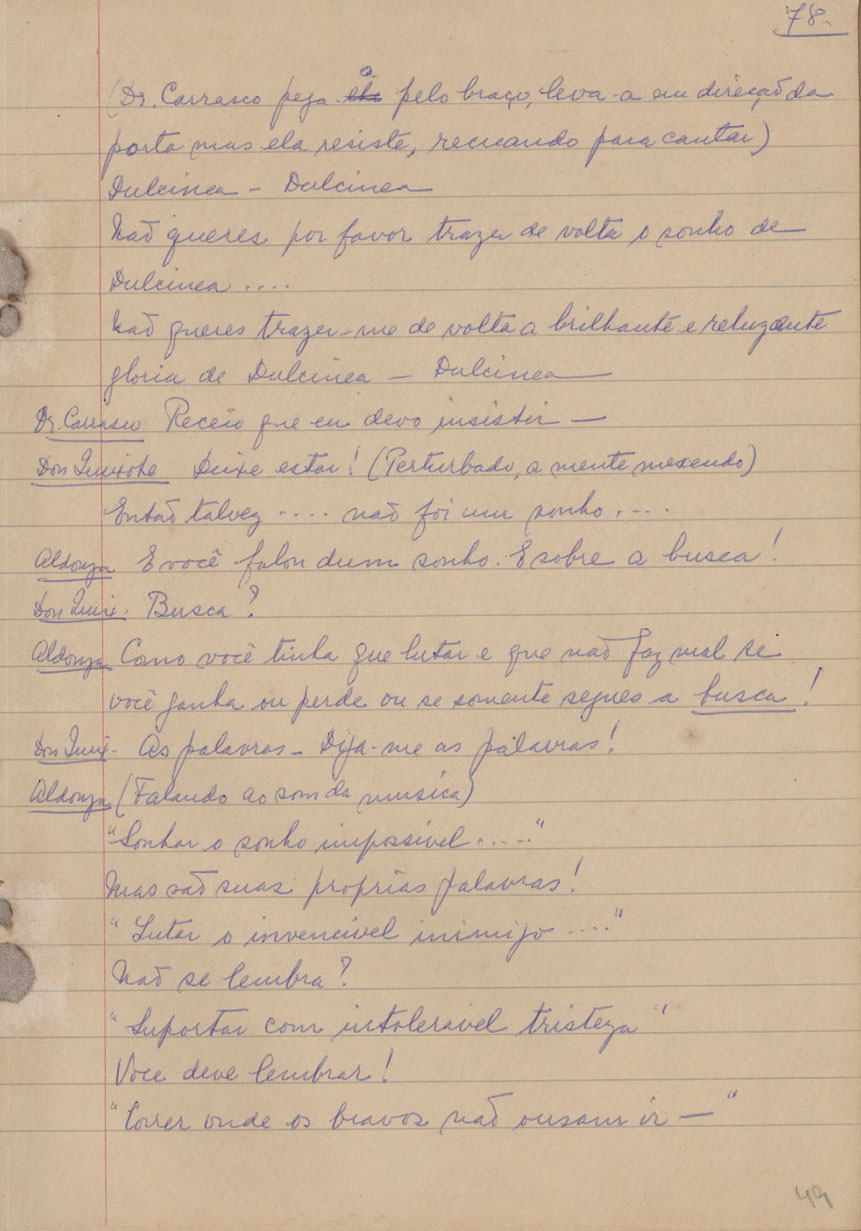 78-
(Dr. Carrasco pega a pelo braço, leva-a em direcção da
porta mas ela resiste, recuando para cantar)
Dulcinea - Dulcinea
Não queres por favor trazer de volta o sonho de
Dulcinea ....
Não queres trazer-me de volta a brilhante e reluzente
gloria de Dulcinea - Dulcinea
Dr. Carrasco Receio que eu devo insistir -
Don Quixote Deixe estar! (Perturbado, a mente mexendo)
Então talvez .... não foi um sonho ....
Aldonza E você falou dum sonho. E sobre a busca!
Don Quix. Busca?
Aldonza Como você tinha que lutar e que não faz mal se
você ganha ou perde ou se somente segues a busca!
Don Quix. As palavras - Diga-me as palavras!
Aldonza (Falando ao som da musica)
"Sonhar o sonho impossível ....."
Mas são suas proprias palavras!
"Lutar o invencível inimigo ...."
Não se lembra?
"Suportar com intoleravel tristeza"
Voce deve lembrar!
"Correr onde os bravos não ousam ir -"
49